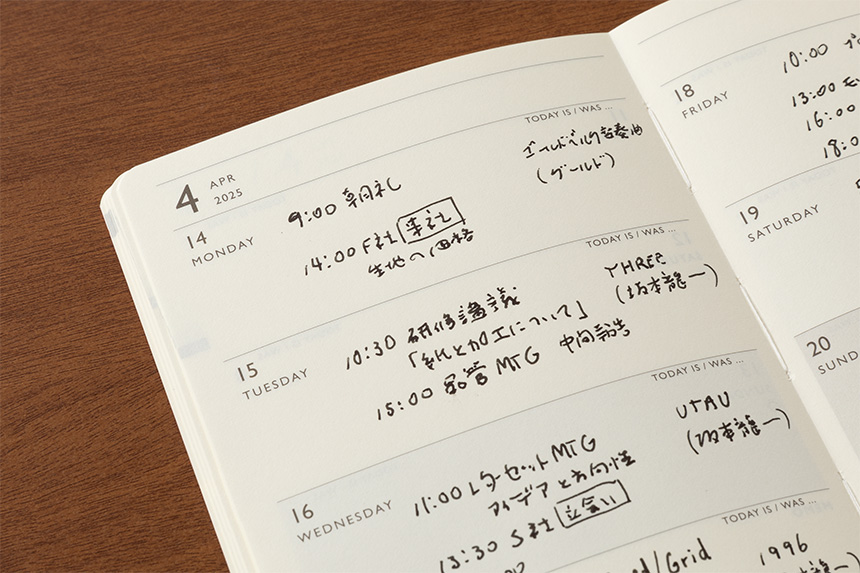 4 APR
2025
TODAY IS / WAS ...
14
MONDAY
9:00 朝礼
ゴールドベルク変奏曲
(グールド)
14:00 F社 来社
生地の価格
TODAY IS / WAS ...
15
TUESDAY
10:30 研修講義
「紙と加工について」
15:00 品管MTG 中間報告
THREE
(坂本龍一)
TODAY IS / WAS ...
16
WEDNESDAY
11:00 レターセットMTG
アイデアと方向性
13:30 S社 立会い
UTAU
(坂本龍一)
TODAY IS / WAS ...
/Grid
1996
(坂本龍一)
18
FRIDAY
10:00
13:00
16:00
18:0
19
SATURDAY
20
SUND